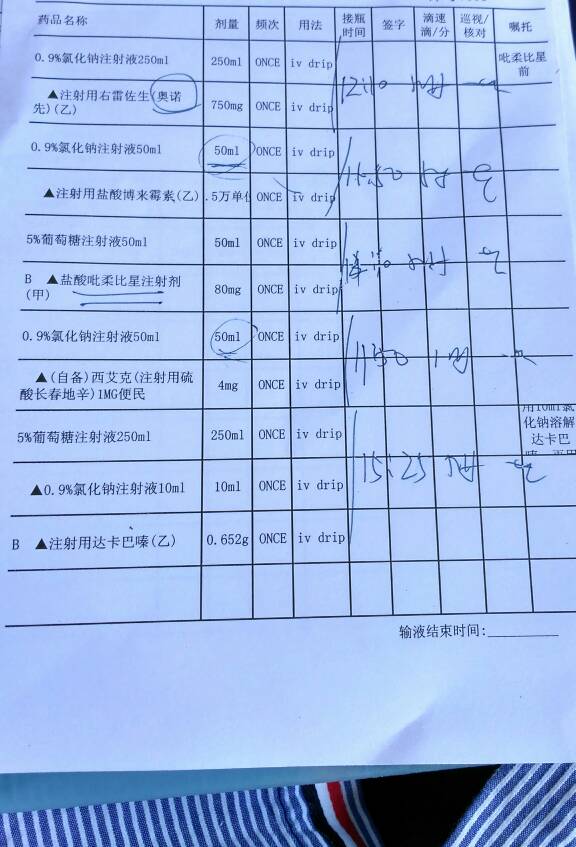 药品名称 剂量 频次 用法 接瓶时间 签字 滴速滴/分 巡视/核对 嘱托
0.9%氯化钠注射液250ml 250ml ONCE iv drip 吡柔比星前
▲注射用右雷佐生(奥诺先)(乙) 750mg ONCE iv drip
0.9%氯化钠注射液50ml 50ml ONCE iv drip
▲注射用盐酸博来霉素(乙) .5万单位 ONCE iv drip
11:50
5%葡萄糖注射液50ml 50ml ONCE iv drip
B ▲盐酸吡柔比星注射剂(甲) 80mg ONCE iv drip
0.9%氯化钠注射液50ml 50ml ONCE iv drip
▲(自备)西艾克(注射用硫酸长春地辛)1MG便民 4mg ONCE iv drip
用10ml氯化钠溶解达卡巴嗪
5%葡萄糖注射液250ml 250ml ONCE iv drip
15:25
▲0.9%氯化钠注射液10ml 10ml ONCE iv drip
B ▲注射用达卡巴嗪(乙) 0.652g ONCE iv drip
输液结束时间: